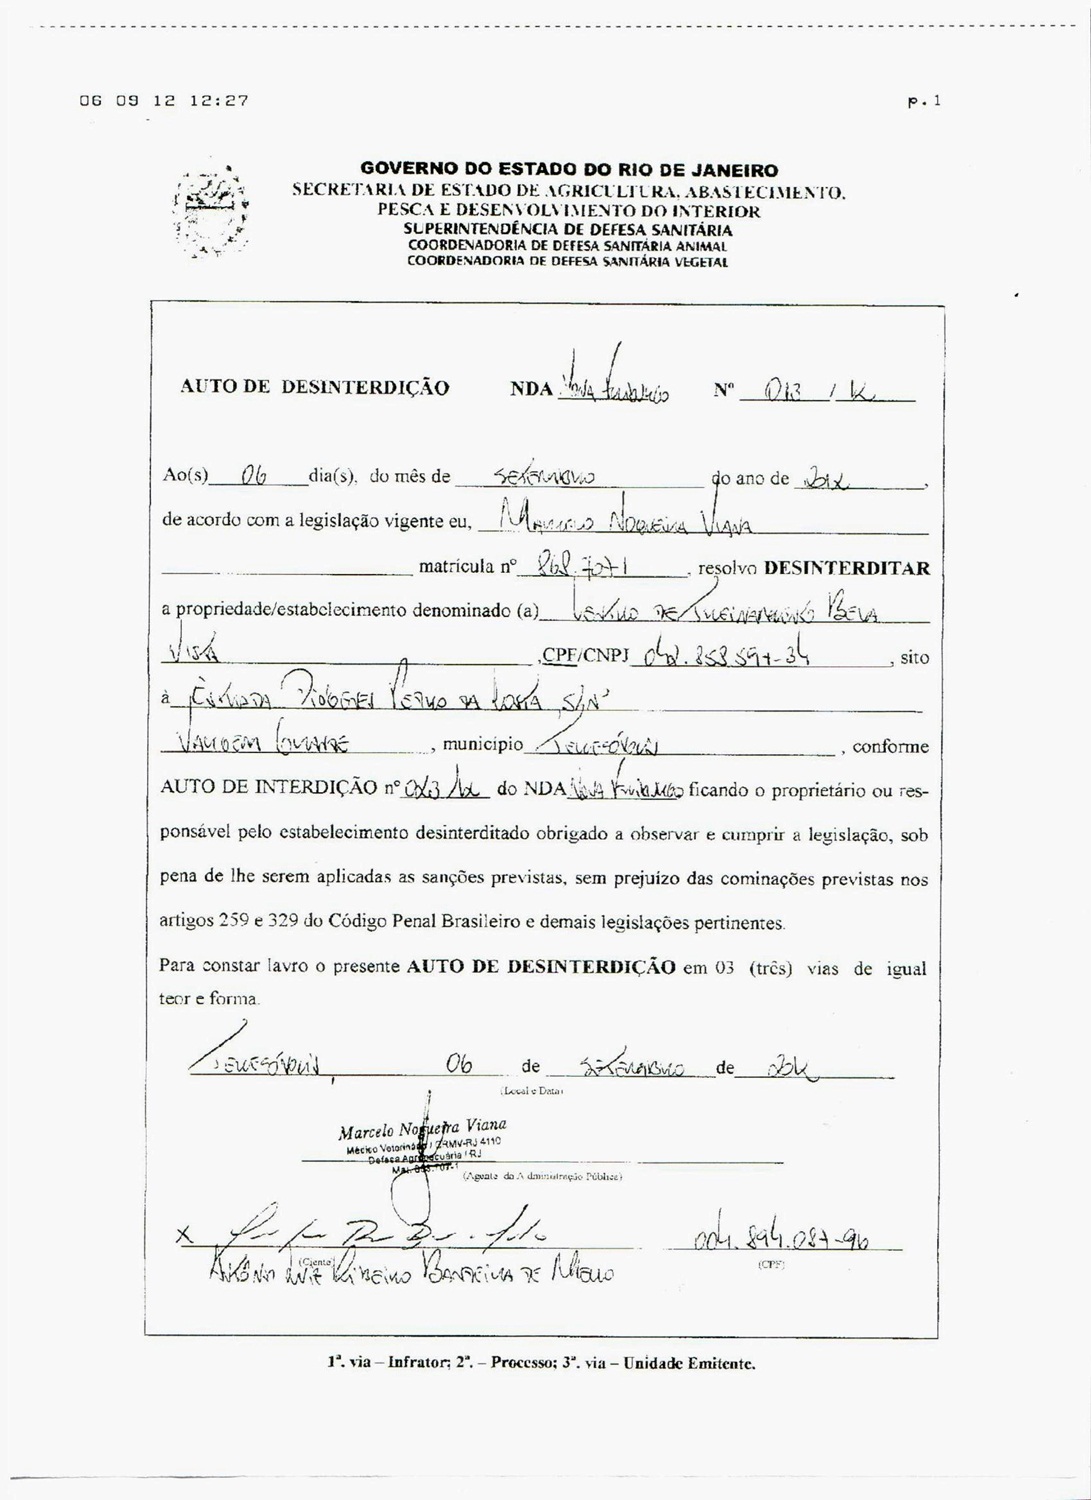 06 09 12 12:27 p.1
GOVERNO DO ESTADO DO RIO DE JANEIRO
SECRETARIA DE ESTADO DE AGRICULTURA, ABASTECIMENTO,
PESCA E DESENVOLVIMENTO DO INTERIOR
SUPERINTENDÊNCIA DE DEFESA SANITÁRIA
COORDENADORIA DE DEFESA SANITÁRIA ANIMAL
COORDENADORIA DE DEFESA SANITÁRIA VEGETAL
AUTO DE DESINTERDIÇÃO NDA Nova Friburgo Nº 013 / 12
Ao(s) 06 dia(s), do mês de SETEMBRO do ano de 2012,
de acordo com a legislação vigente eu, MARCELO NOGUEIRA VIANA
matrícula nº 868.707-1, resolvo DESINTERDITAR
a propriedade/estabelecimento denominado (a) CENTRO DE TREINAMENTO BELA
VISTA, CPF/CNPJ 042.858.597-34, sito
à ESTRADA DIÓGENES PEDRO DA COSTA, S/Nº
VARGEM GRANDE, município TERESÓPOLIS, conforme
AUTO DE INTERDIÇÃO nº 013/12 do NDA NOVA FRIBURGO ficando o proprietário ou res-
ponsável pelo estabelecimento desinterditado obrigado a observar e cumprir a legislação, sob
pena de lhe serem aplicadas as sanções previstas, sem prejuizo das cominações previstas nos
artigos 259 e 329 do Código Penal Brasileiro e demais legislações pertinentes.
Para constar lavro o presente AUTO DE DESINTERDIÇÃO em 03 (três) vias de igual
teor e forma.
TERESÓPOLIS 06 de SETEMBRO de 2012
(Local e Data)
Marcelo Nogueira Viana
Médico Veterinário / CRMV-RJ 4110
Defesa Agropecuária / RJ
Mat. 868.707-1
(Agente da Administração Pública)
X 004.894.087-96
(Ciente) (CPF)
ANTÔNIO LUIZ RIBEIRO BANDEIRA DE MELLO
1ª. via – Infrator; 2ª. – Processo; 3ª. via – Unidade Emitente.